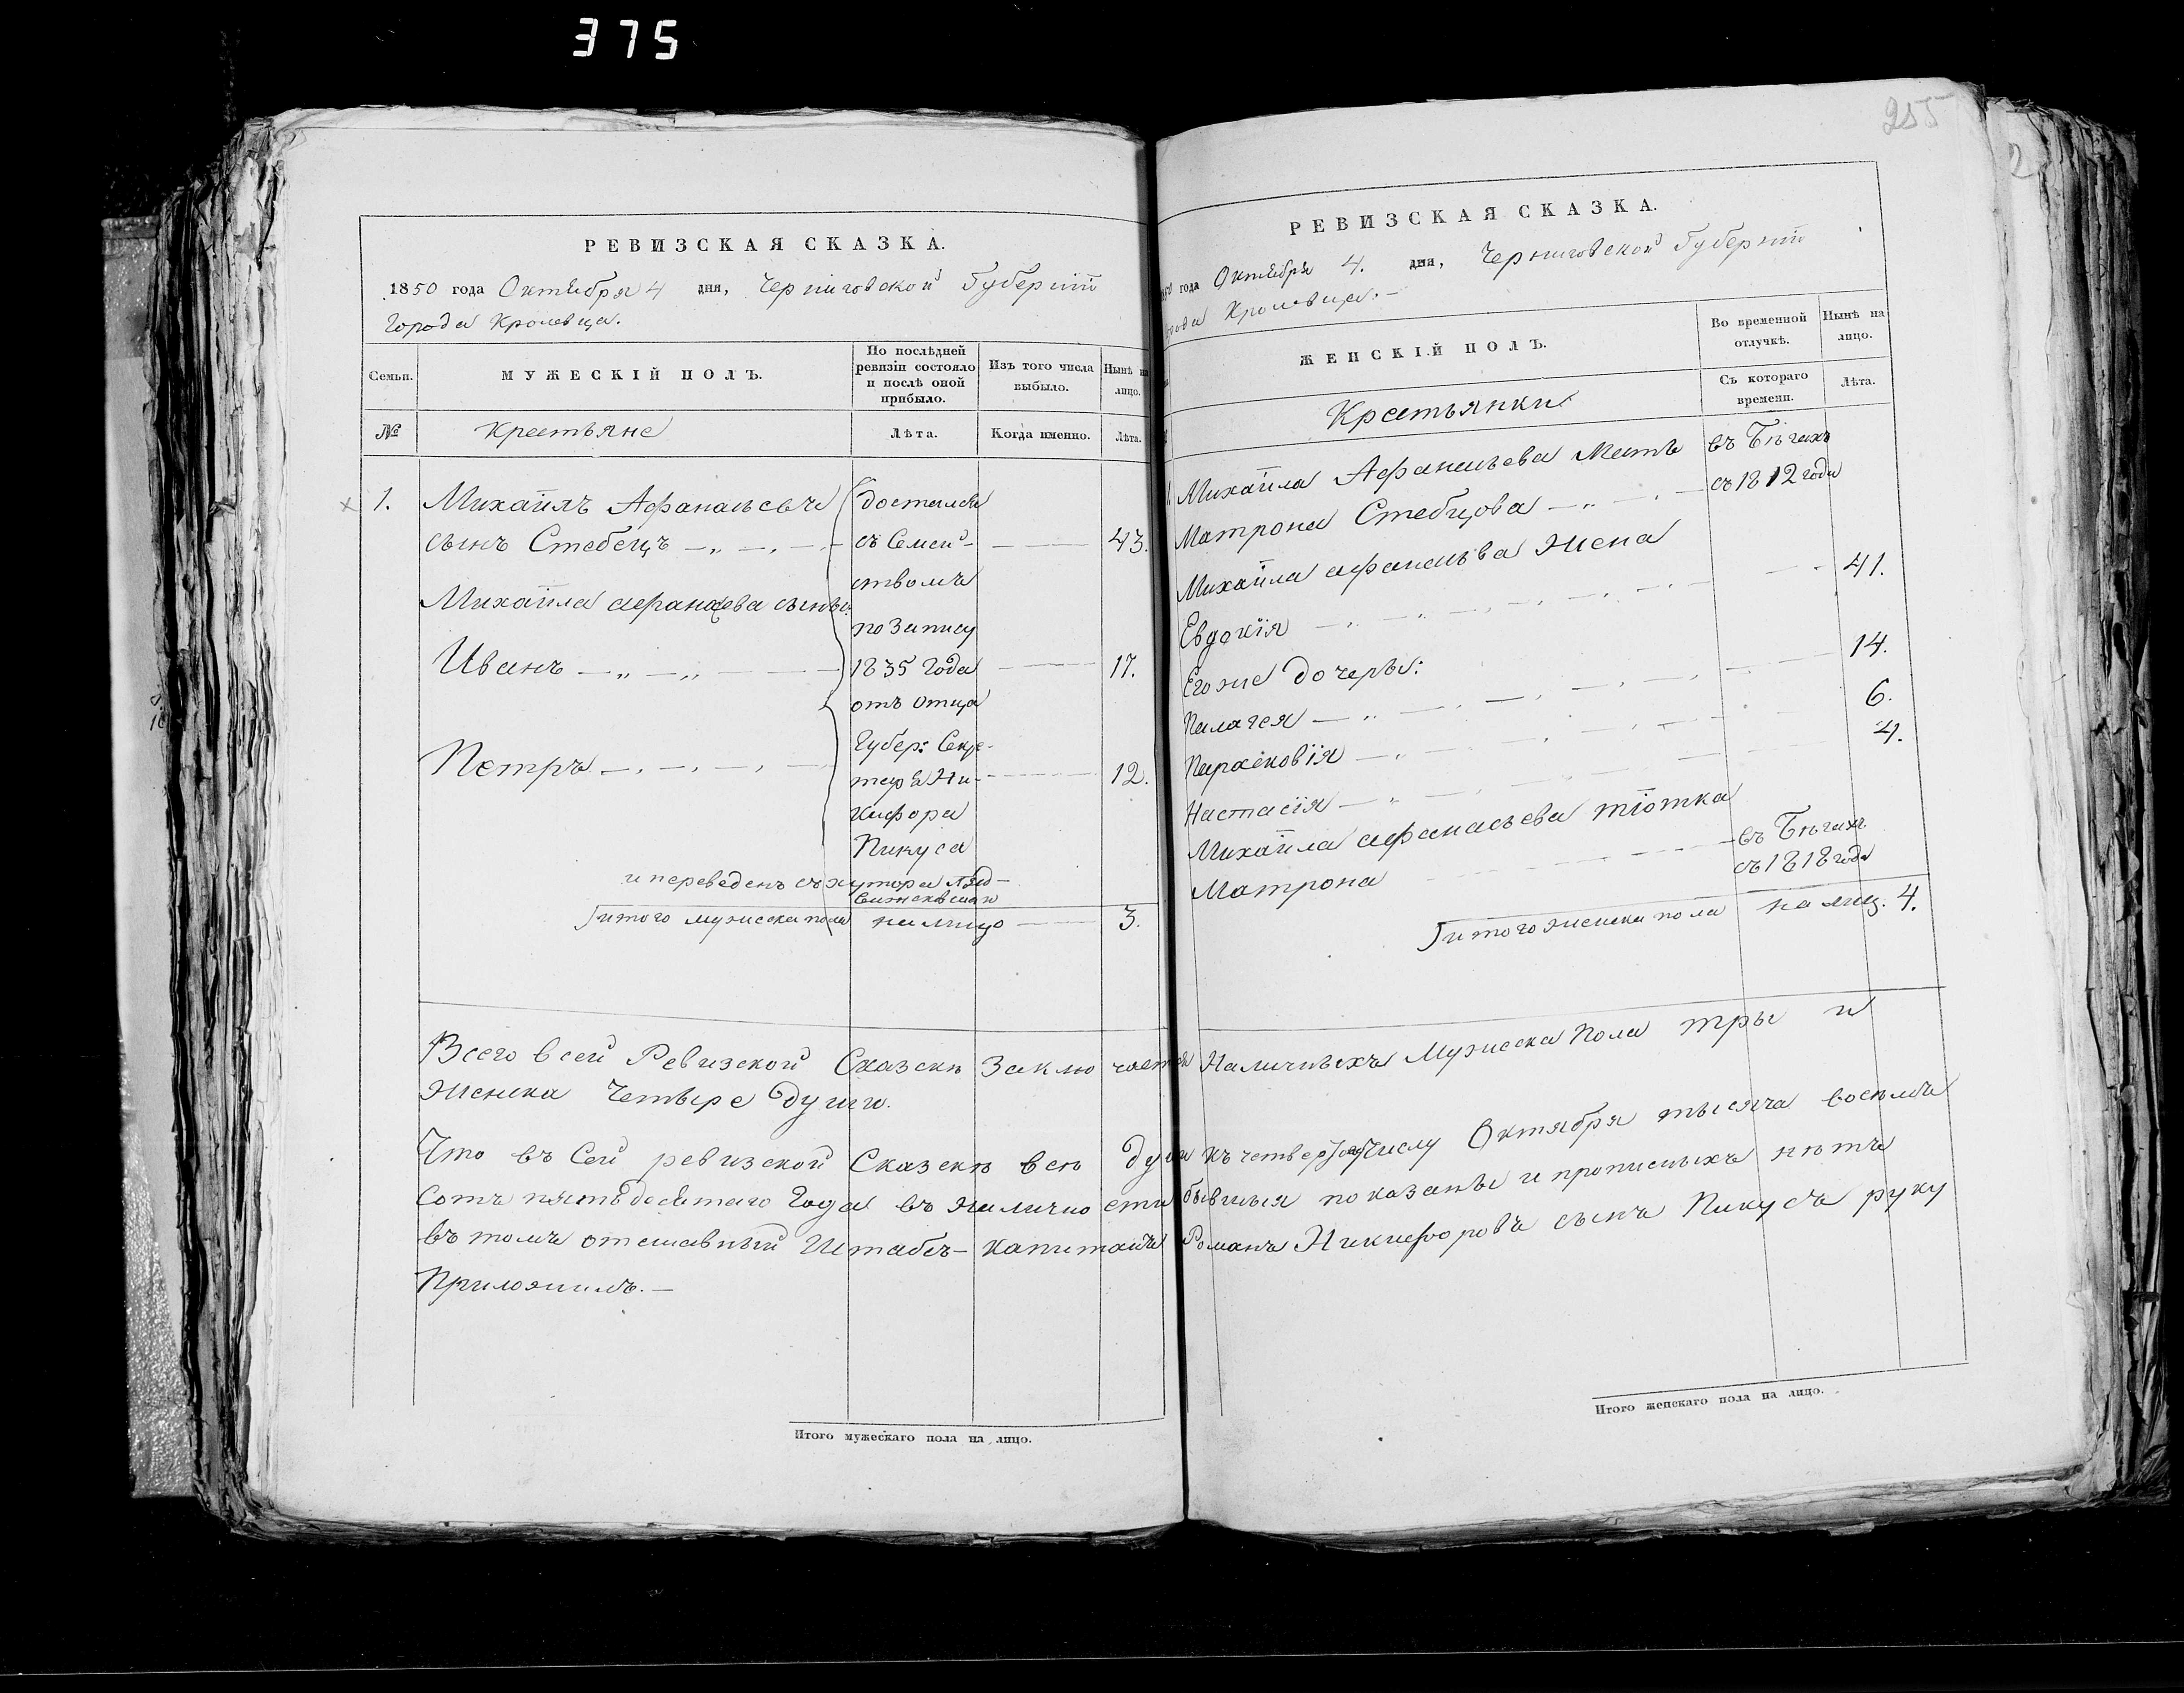 375
РЕВИЗСКАЯ СКАЗКА.
1850 года Октября 4 дня, Черниговской Губерніи
города Кролевца.
Семьи.
МУЖЕСКІЙ ПОЛЪ.
По послѣдней
ревизіи состояло
и послѣ оной
прибыло.
Изъ того числа
выбыло.
Нынѣ на
лицо.
№
Крестьяне
Лѣта.
Когда именно.
Лѣта.
1. Михаилъ Афанасьевъ
сынъ Стебецъ 43.
Михаила Афанасева сыны
Иванъ 17.
Петръ 12.
достался
съ Семей-
ствомъ
по Запису
1835 года
отъ отца
Губер: Секре-
таря Ни-
кифора
Пикуса
и переведенъ съ хутора
итого мужеска пола на лицо 3.
255
2
РЕВИЗСКАЯ СКАЗКА.
года Октября 4. дня, Черниговской Губерніи
города Кролевца.
ЖЕНСКІЙ ПОЛЪ.
Во временной
отлучкѣ.
Нынѣ на
лицо.
Съ котораго
времени.
Лѣта.
Крестьянки
Михаила Афанасьева Мать въ Бѣгахъ
Матрона Стебцова съ 1812 года
Михаила Афанасьва Жена
Евдокія 41.
Егоже дочеры:
Палагея 14.
Парасковія 6.
Настасія 4.
Михаила Афанасьева тіотка
Матрона въ Бѣгахъ
съ 1818 года
итого женска пола на лиц. 4.
Всего в сей Ревизской Сказскѣ Заключается Наличныхъ Мужеска Пола тры и
Женска Четыре души.
Что въ Сей ревизской Сказскѣ всѣ души къ четвертому Числу Октября тысяча восемъ
Сотъ пятьдесятаго Года въ наличности бывшыя показаны и прописныхъ нѣтъ
въ томъ отставный Штабсъ-Капитанъ Романъ Никифоровъ сынъ Пикусъ руку
Приложилъ.
Итого мужескаго пола на лицо.
Итого женскаго пола на лицо.